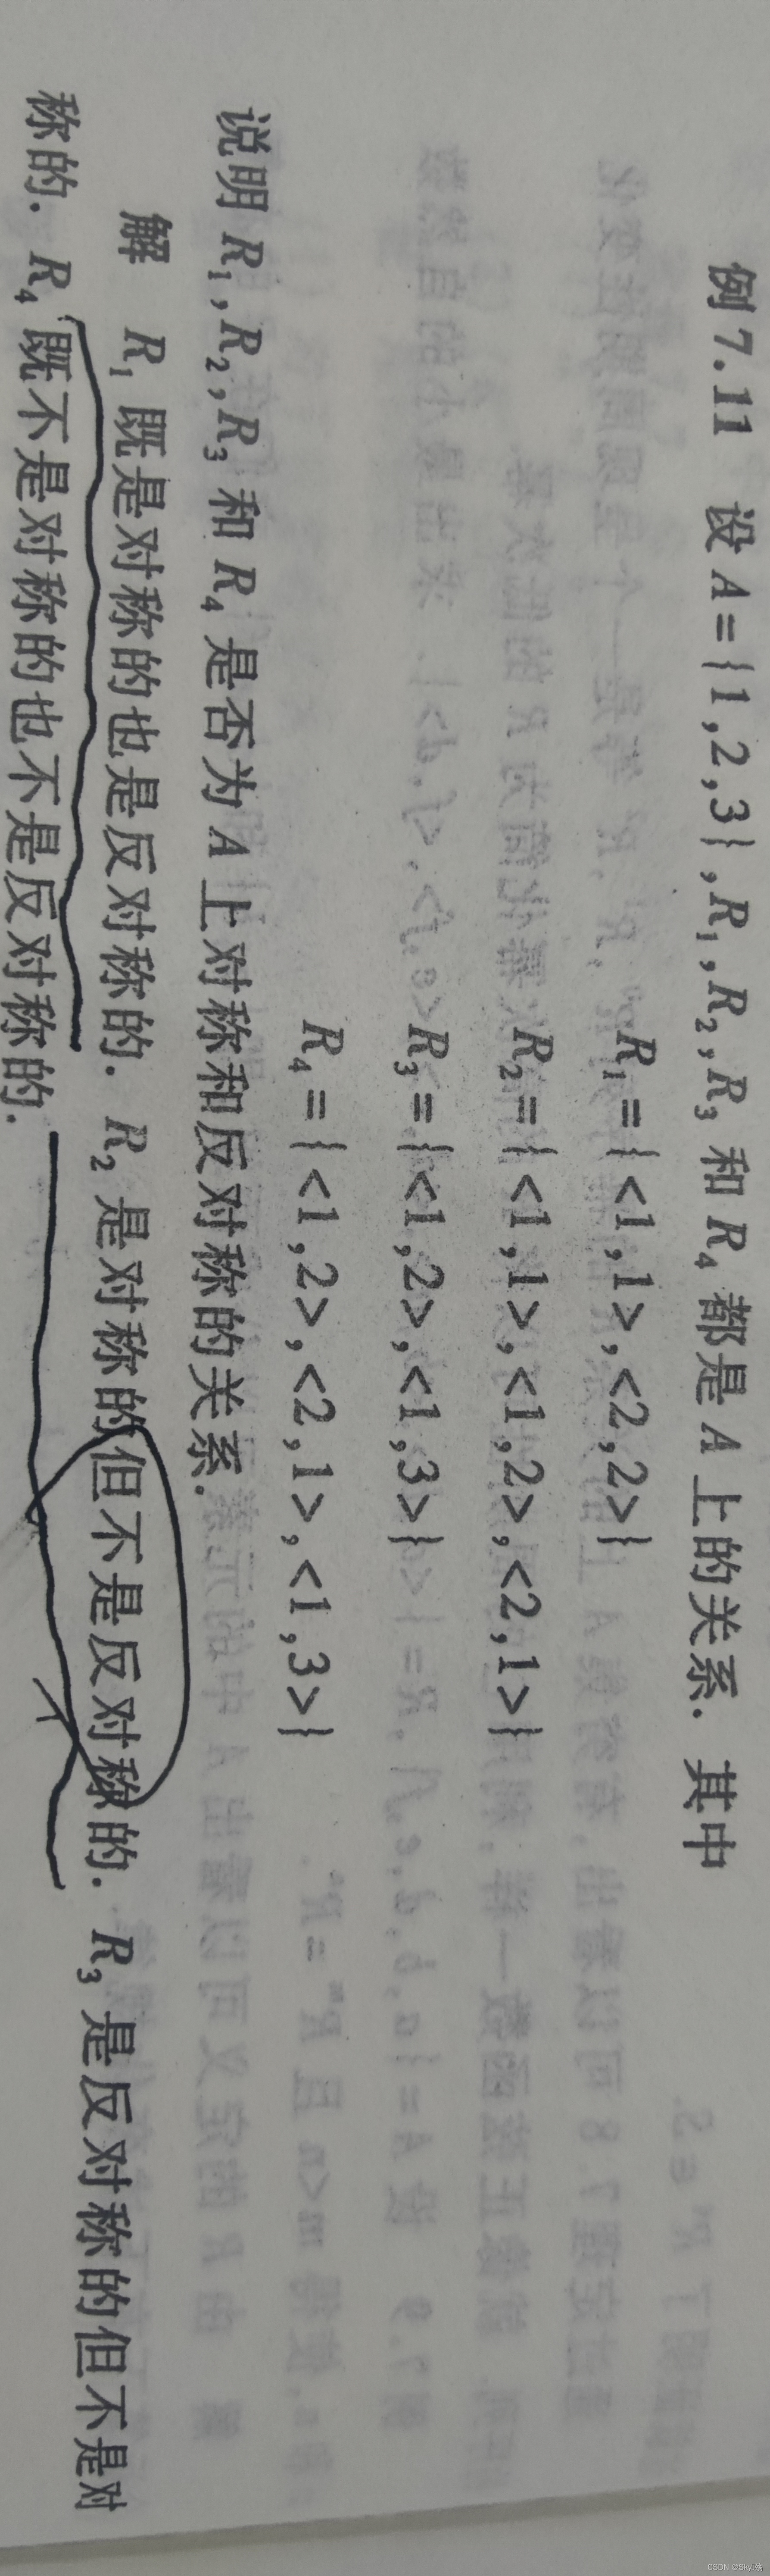 例 7.11 设 A={1,2,3},R₁,R₂,R₃ 和 R₄ 都是 A 上的关系. 其中
R₁={<1,1>,<2,2>}
R₂={<1,1>,<1,2>,<2,1>}
R₃={<1,2>,<1,3>}
R₄={<1,2>,<2,1>,<1,3>}
说明 R₁,R₂,R₃ 和 R₄ 是否为 A 上对称和反对称的关系.
解 R₁ 既是对称的也是反对称的. R₂ 是对称的但不是反对称的. R₃ 是反对称的但不是对
称的. R₄ 既不是对称的也不是反对称的.